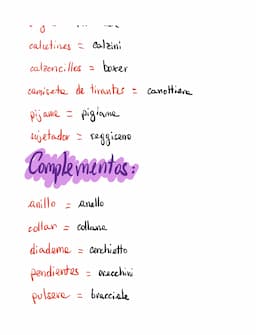 calcetines = calzini
calzoncillos = boxer
camiseta de tirantes = canottiera
pijama = pigiama
sujetador = reggiseno
Complementos:
anillo = anello
collar = collana
diadema = cerchietto
pendientes = orecchini
pulsera = bracciale